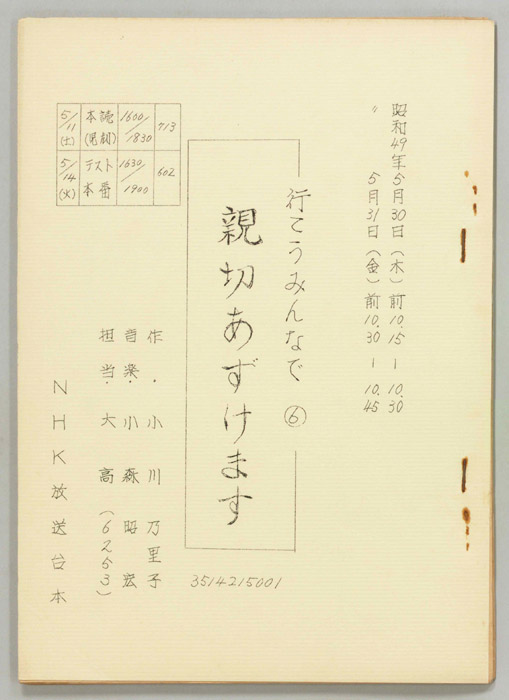 昭和49年5月30日（木）前10.15－10.30
〃 5月31日（金）前10.30－10.45
行こうみんなで ⑥
親切あずけます
作・小川乃里子
音楽・小森昭宏
担当・大高（6253）
NHK放送台本
5/11（土） 本読（見制） 1600/1830 713
5/14（火） テスト本番 1630/1900 602
3514215001